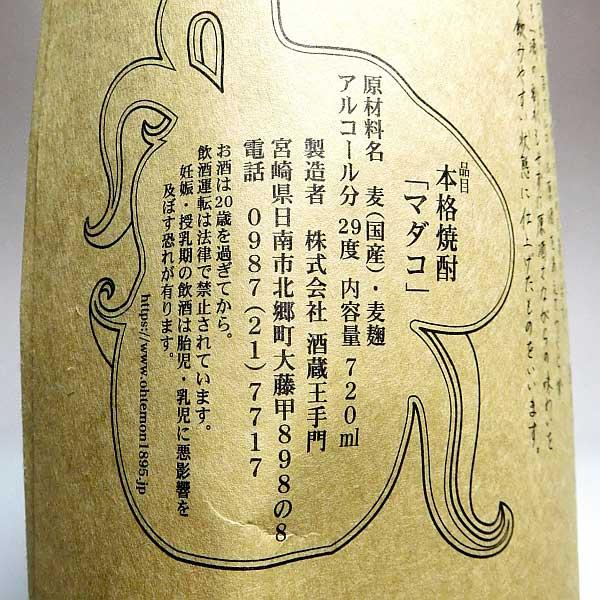 酒の
飲みやすい状態に仕上げたものをいいます。
品目
本格焼酎
「マダコ」
原材料名 麦(国産)・麦麹
アルコール分 29度 内容量 720ml
製造者 株式会社 酒蔵王手門
宮崎県日南市北郷町大藤甲898の8
電話 0987(21)7717
お酒は20歳を過ぎてから。
飲酒運転は法律で禁止されています。
妊娠・授乳期の飲酒は胎児・乳児に悪影響を
及ぼす恐れが有ります。
https://www.ohtemon1895.jp